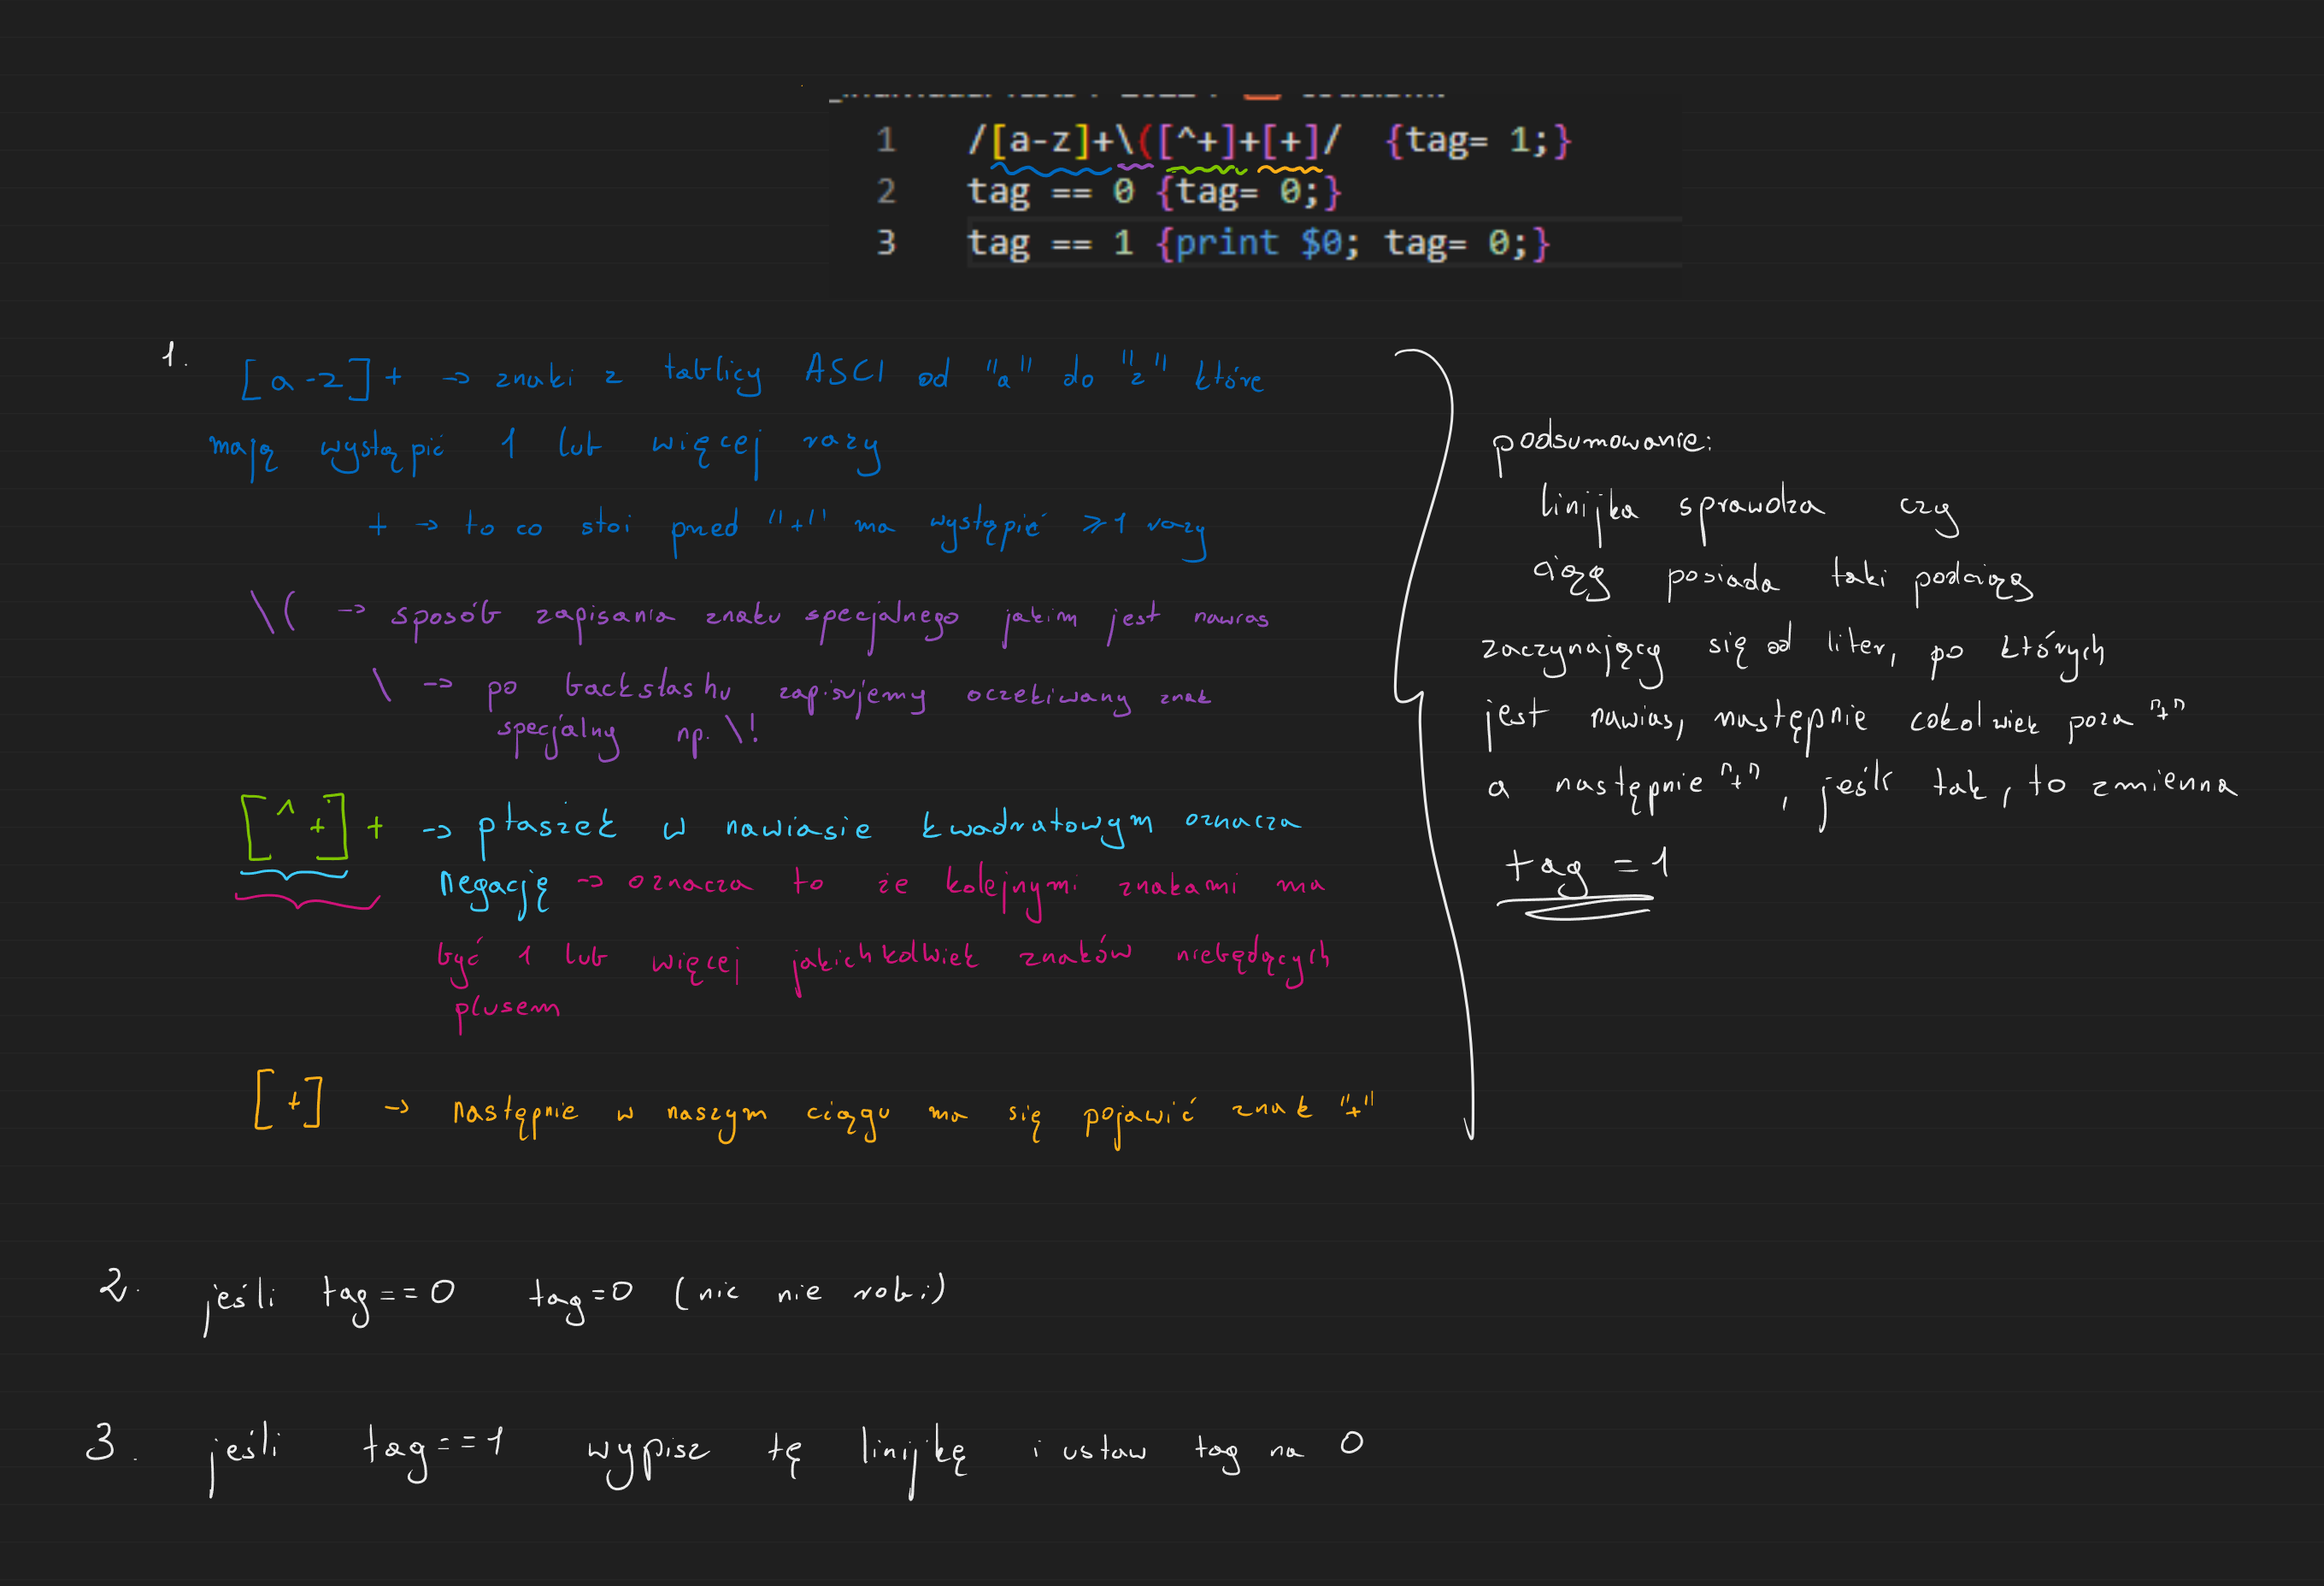 1 /[a-z]+\([^+]+[+]/ {tag= 1;}
2 tag == 0 {tag= 0;}
3 tag == 1 {print $0; tag= 0;}
1. [a-z]+ -> znaki z tablicy ASCI od "a" do "z" które
mają wystąpić 1 lub więcej razy
+ -> to co stoi przed "+" ma wystąpić ≥1 razy
\( -> sposób zapisania znaku specjalnego jakim jest nawias
\ -> po backslashu zapisujemy oczekiwany znak
specjalny np. \!
[^+]+ -> ptaszek w nawiasie kwadratowym oznacza
negację -> oznacza to że kolejnymi znakami ma
być 1 lub więcej jakichkolwiek znaków niebędących
plusem
[+] -> następnie w naszym ciągu ma się pojawić znak "+"
podsumowanie:
linijka sprawdza czy
ciąg posiada taki podciąg
zaczynający się od liter, po których
jest nawias, następnie cokolwiek poza "+"
a następnie "+", jeśli tak, to zmienna
tag = 1
2. jeśli tag==0 tag=0 (nic nie robi)
3. jeśli tag==1 wypisz tę linijkę i ustaw tag na 0